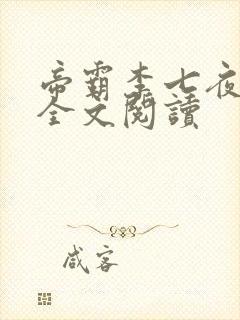 帝霸李七夜
全文閱讀
咸客